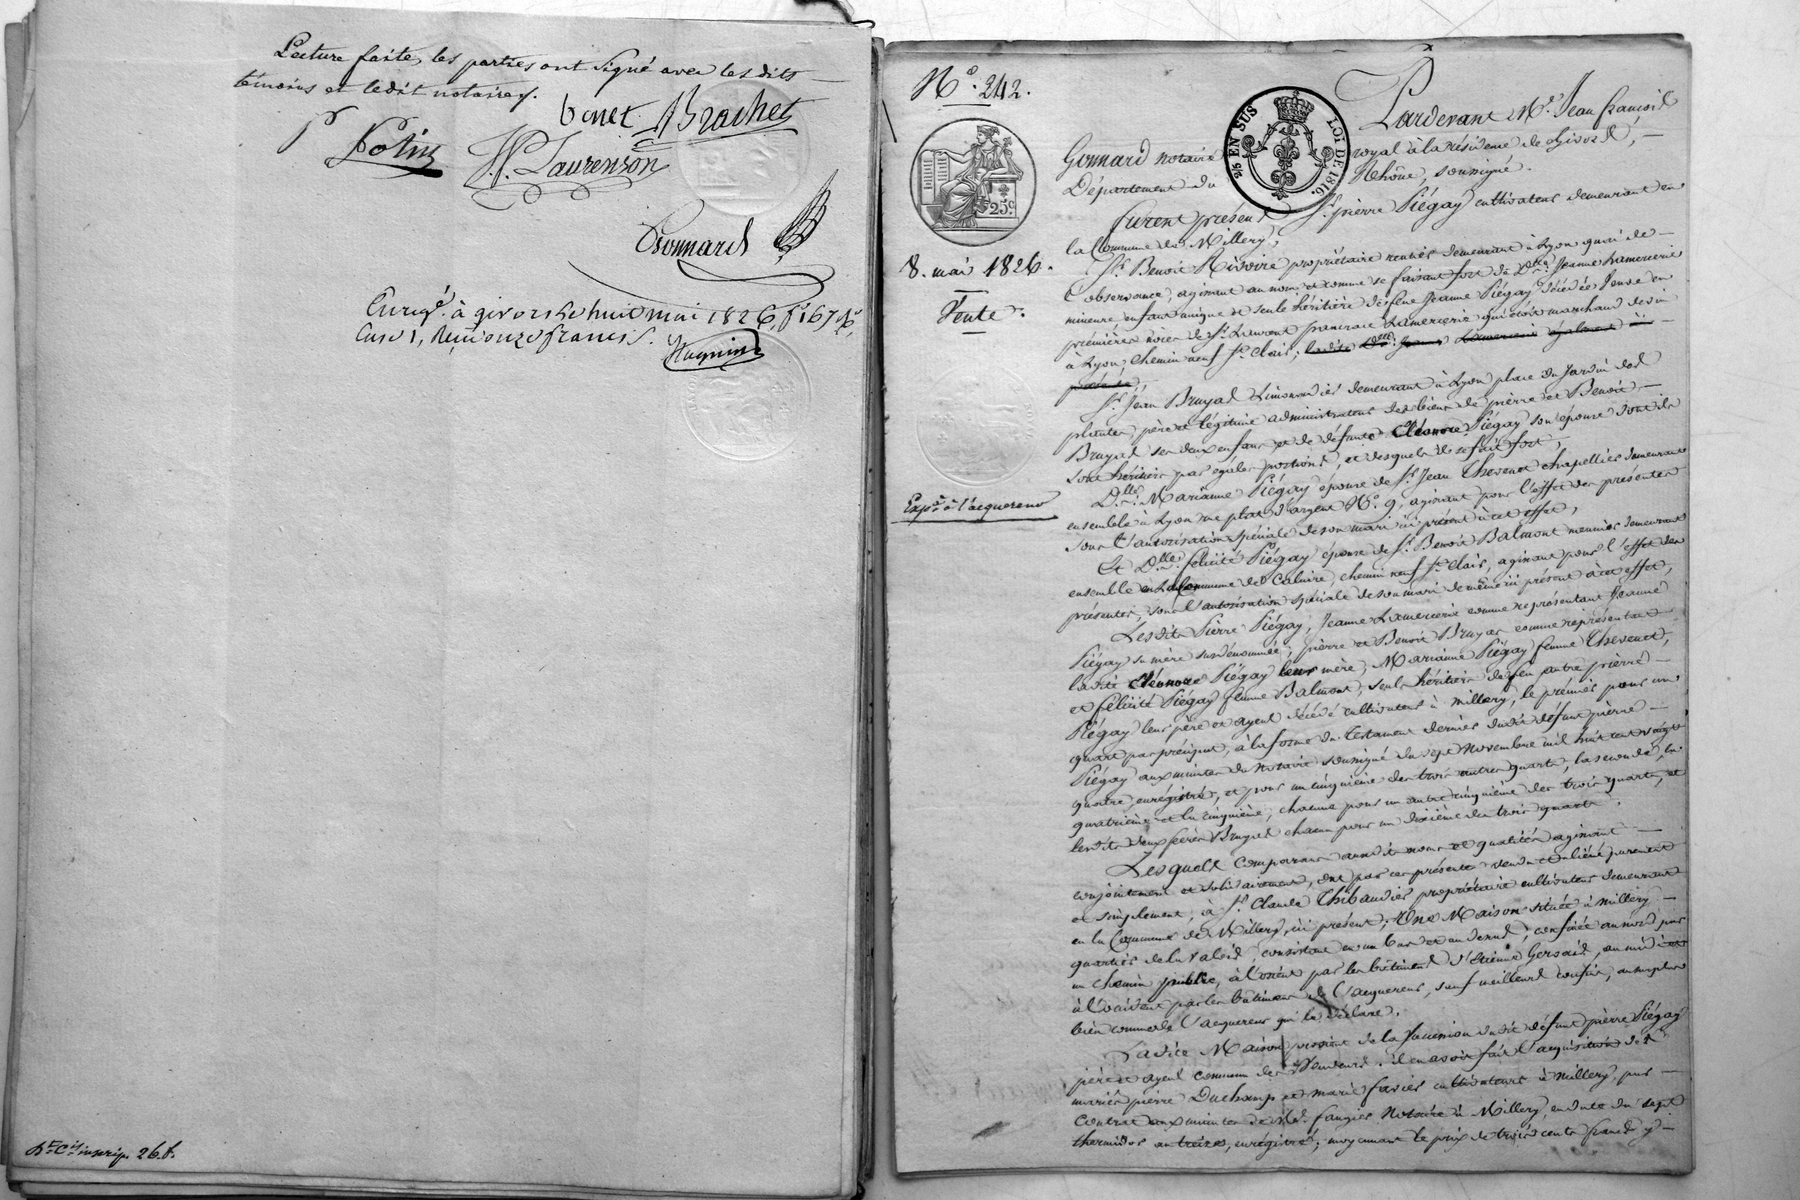 Lecture faite, les parties ont signé avec les dits
témoins et ledit notaire.
benet ABrachet
Potin JP. Laurenson
Gonnard
Enreg.é à givors le huit mai 1826, f.º 167 Vº
Case 1, Reçu onze francs.
Huguin
N.º 242.
25 c.
2/5 EN SUS
LOI DE 1816.
8. mai 1826.
Vente.
Exp.on à l'acquereur
Pardevant M.e Jean françois
Gonnard notaire royal à la résidence de Givors,
Département du Rhône, soussigné.
furent présens S.r pierre Piégay cultivateur demeurant en
la Commune de Millery,
S.r Benoit propriétaire rentier demeurant à Lyon quai de
l'observance, agissant au nom et comme se faisant fort de D.lle Jeanne Lamercerie
mineure enfant unique et seule héritière de feue Jeanne Piégay décédée veuve en
premières noces de S.r Laurent françois Lamercerie qui était marchand de vin
à Lyon, chemin neuf S.t Clair; ladite D.lle Jeanne Lamercerie également ici
présente,
S.r Jean Bruyas Limonadier demeurant à Lyon place du Jardin des
plantes, père et légitime administrateur des biens de pierre et Benoit
Bruyas ses deux enfans et de défunte Eléonore Piégay son épouse dont ils
sont héritiers par égales portions, et desquels il se fait fort,
D.lle Marianne Piégay épouse de S.r Jean Thevenet chapellier demeurant
ensemble à Lyon rue plat d'argent N.º 9, agissant pour l'effet des présentes
sous l'autorisation spéciale de son mari ici présent à cet effet,
Et D.lle félicité Piégay épouse de S.r Benoit Balmont meunier demeurant
ensemble en la Commune de Caluire, chemin neuf S.t Clair, agissant pour l'effet des
présentes, sous l'autorisation spéciale de son mari de même ici présent à cet effet,
Lesdits Pierre Piégay, Jeanne Lamercerie comme représentant Jeanne
Piégay sa mère susdénommée, pierre et Benoit Bruyas comme représentant
ladite Eléonore Piégay leur mère, Marianne Piégay femme Thevenet,
et félicité Piégay femme Balmont, seuls héritiers de feu autre pierre
Piégay leur père et ayeul décédé cultivateur à Millery, le premier pour un
quart par préciput, à la forme du testament dernier dudit défunt pierre
Piégay aux minutes du Notaire soussigné du sept Novembre mil huit cent vingt
quatre, enregistré, et pour un cinquième des trois autres quarts, la seconde, la
quatrième et la cinquième, chacune pour un autre cinquième des trois quarts, et
lesdits deux frères Bruyas chacun pour un dixième des trois quarts.
Lesquels comparans auxdits noms et qualités agissant
conjointement et solidairement, ont par ces présentes vendu et aliéné purement
et simplement, à S.r Claude Thibaudier propriétaire cultivateur demeurant
en la Commune de Millery, ici présent, Une Maison située à Millery
quartier de la, consistant en un bas et au dessus, confinée au nord par
un chemin public, à l'orient par les bâtimens d'Etienne Gervais, au midi et
à l'occident par les bâtimens de l'acquereur, sauf meilleurs confins, au surplus
bien connue de l'acquereur qui le déclare.
Ladite Maison provient de la succession dudit défunt pierre Piégay
père et ayeul commun des Vendeurs. il en avoit fait l'acquisition des
mariés pierre Duchamp et marie favier cultivateurs à Millery, par
Contrat aux minutes de M.e Notaire à Millery, en date du sept
thermidor an treize, enregistré; moyennant le prix de trois cents francs
B.t C.t inscrip. 26. f.